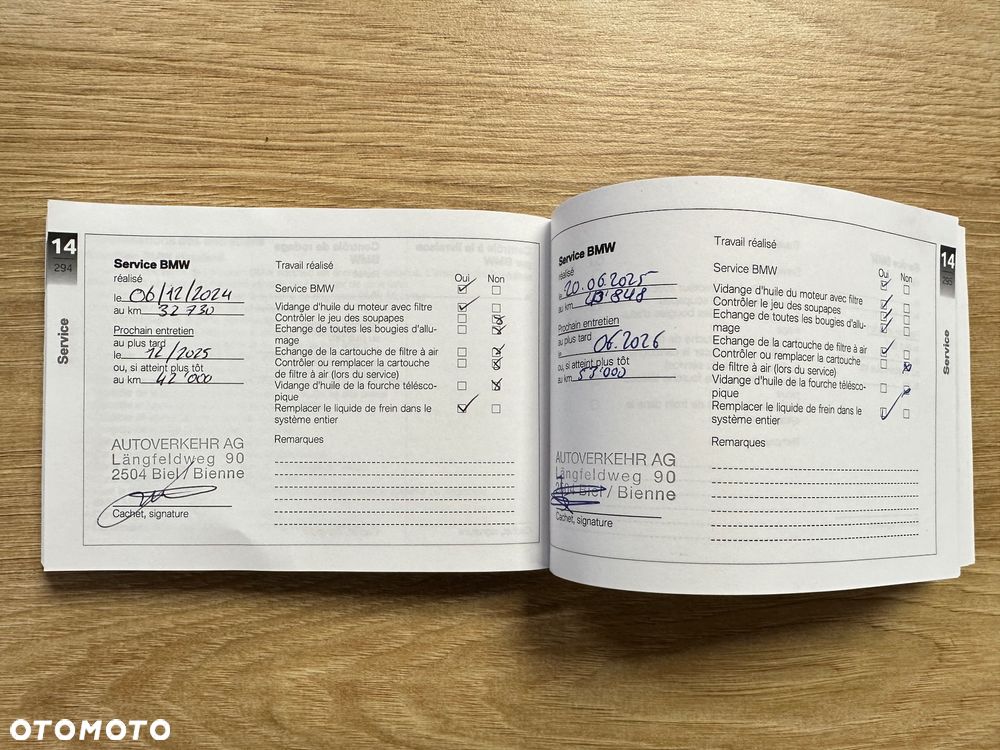 14
294
Service
Service BMW
réalisé
le 06/12/2024
au km 32 730
Prochain entretien
au plus tard
le 12/2025
ou, si atteint plus tôt
au km 42'000
AUTOVERKEHR AG
Längfeldweg 90
2504 Biel/Bienne
Cachet, signature
Travail réalisé
Oui Non
Service BMW
Vidange d'huile du moteur avec filtre
Contrôler le jeu des soupapes
Echange de toutes les bougies d'allu-
mage
Echange de la cartouche de filtre à air
Contrôler ou remplacer la cartouche
de filtre à air (lors du service)
Vidange d'huile de la fourche télésco-
pique
Remplacer le liquide de frein dans le
système entier
Remarques
Service BMW
réalisé
le 20.06.2025
au km 848
Prochain entretien
au plus tard
06.2026
ou, si atteint plus tôt
au km 000
AUTOVERKEHR AG
Längfeldweg 90
2504 Biel/Bienne
Cachet, signature
Travail réalisé
Oui Non
Service BMW
Vidange d'huile du moteur avec filtre
Contrôler le jeu des soupapes
Echange de toutes les bougies d'allu-
mage
Echange de la cartouche de filtre à air
Contrôler ou remplacer la cartouche
de filtre à air (lors du service)
Vidange d'huile de la fourche télésco-
pique
Remplacer le liquide de frein dans le
système entier
Remarques
14
Service
OTOMOTO